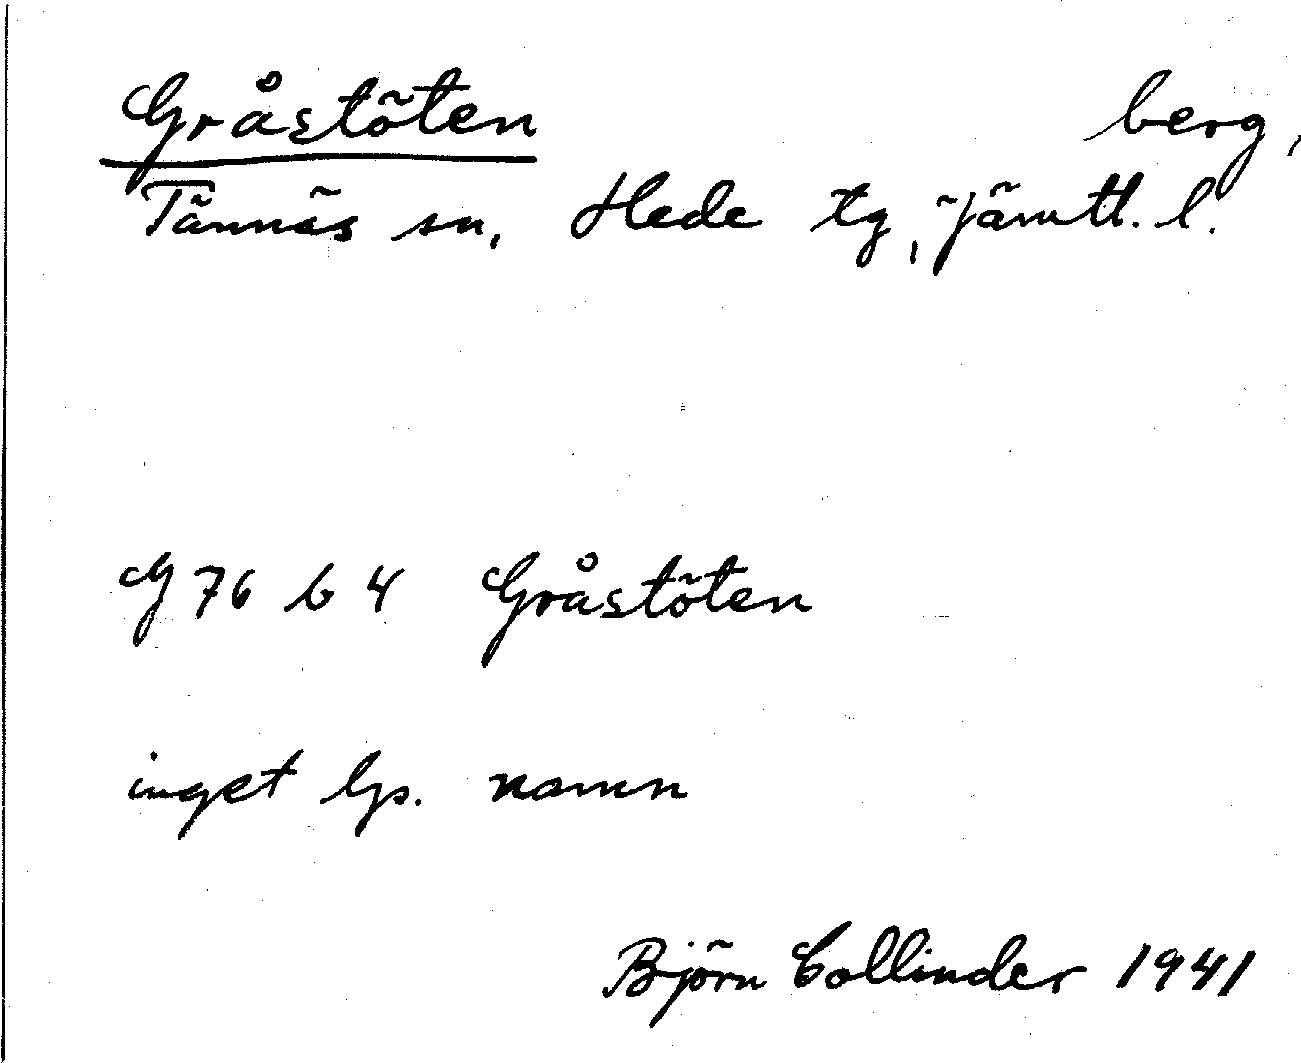 Gråstöten berg,
Tännäs sn, Hede tg, Jämtl. l.
G 76 b 4 Gråstöten
inget lp. namn
Björn Collinder 1941